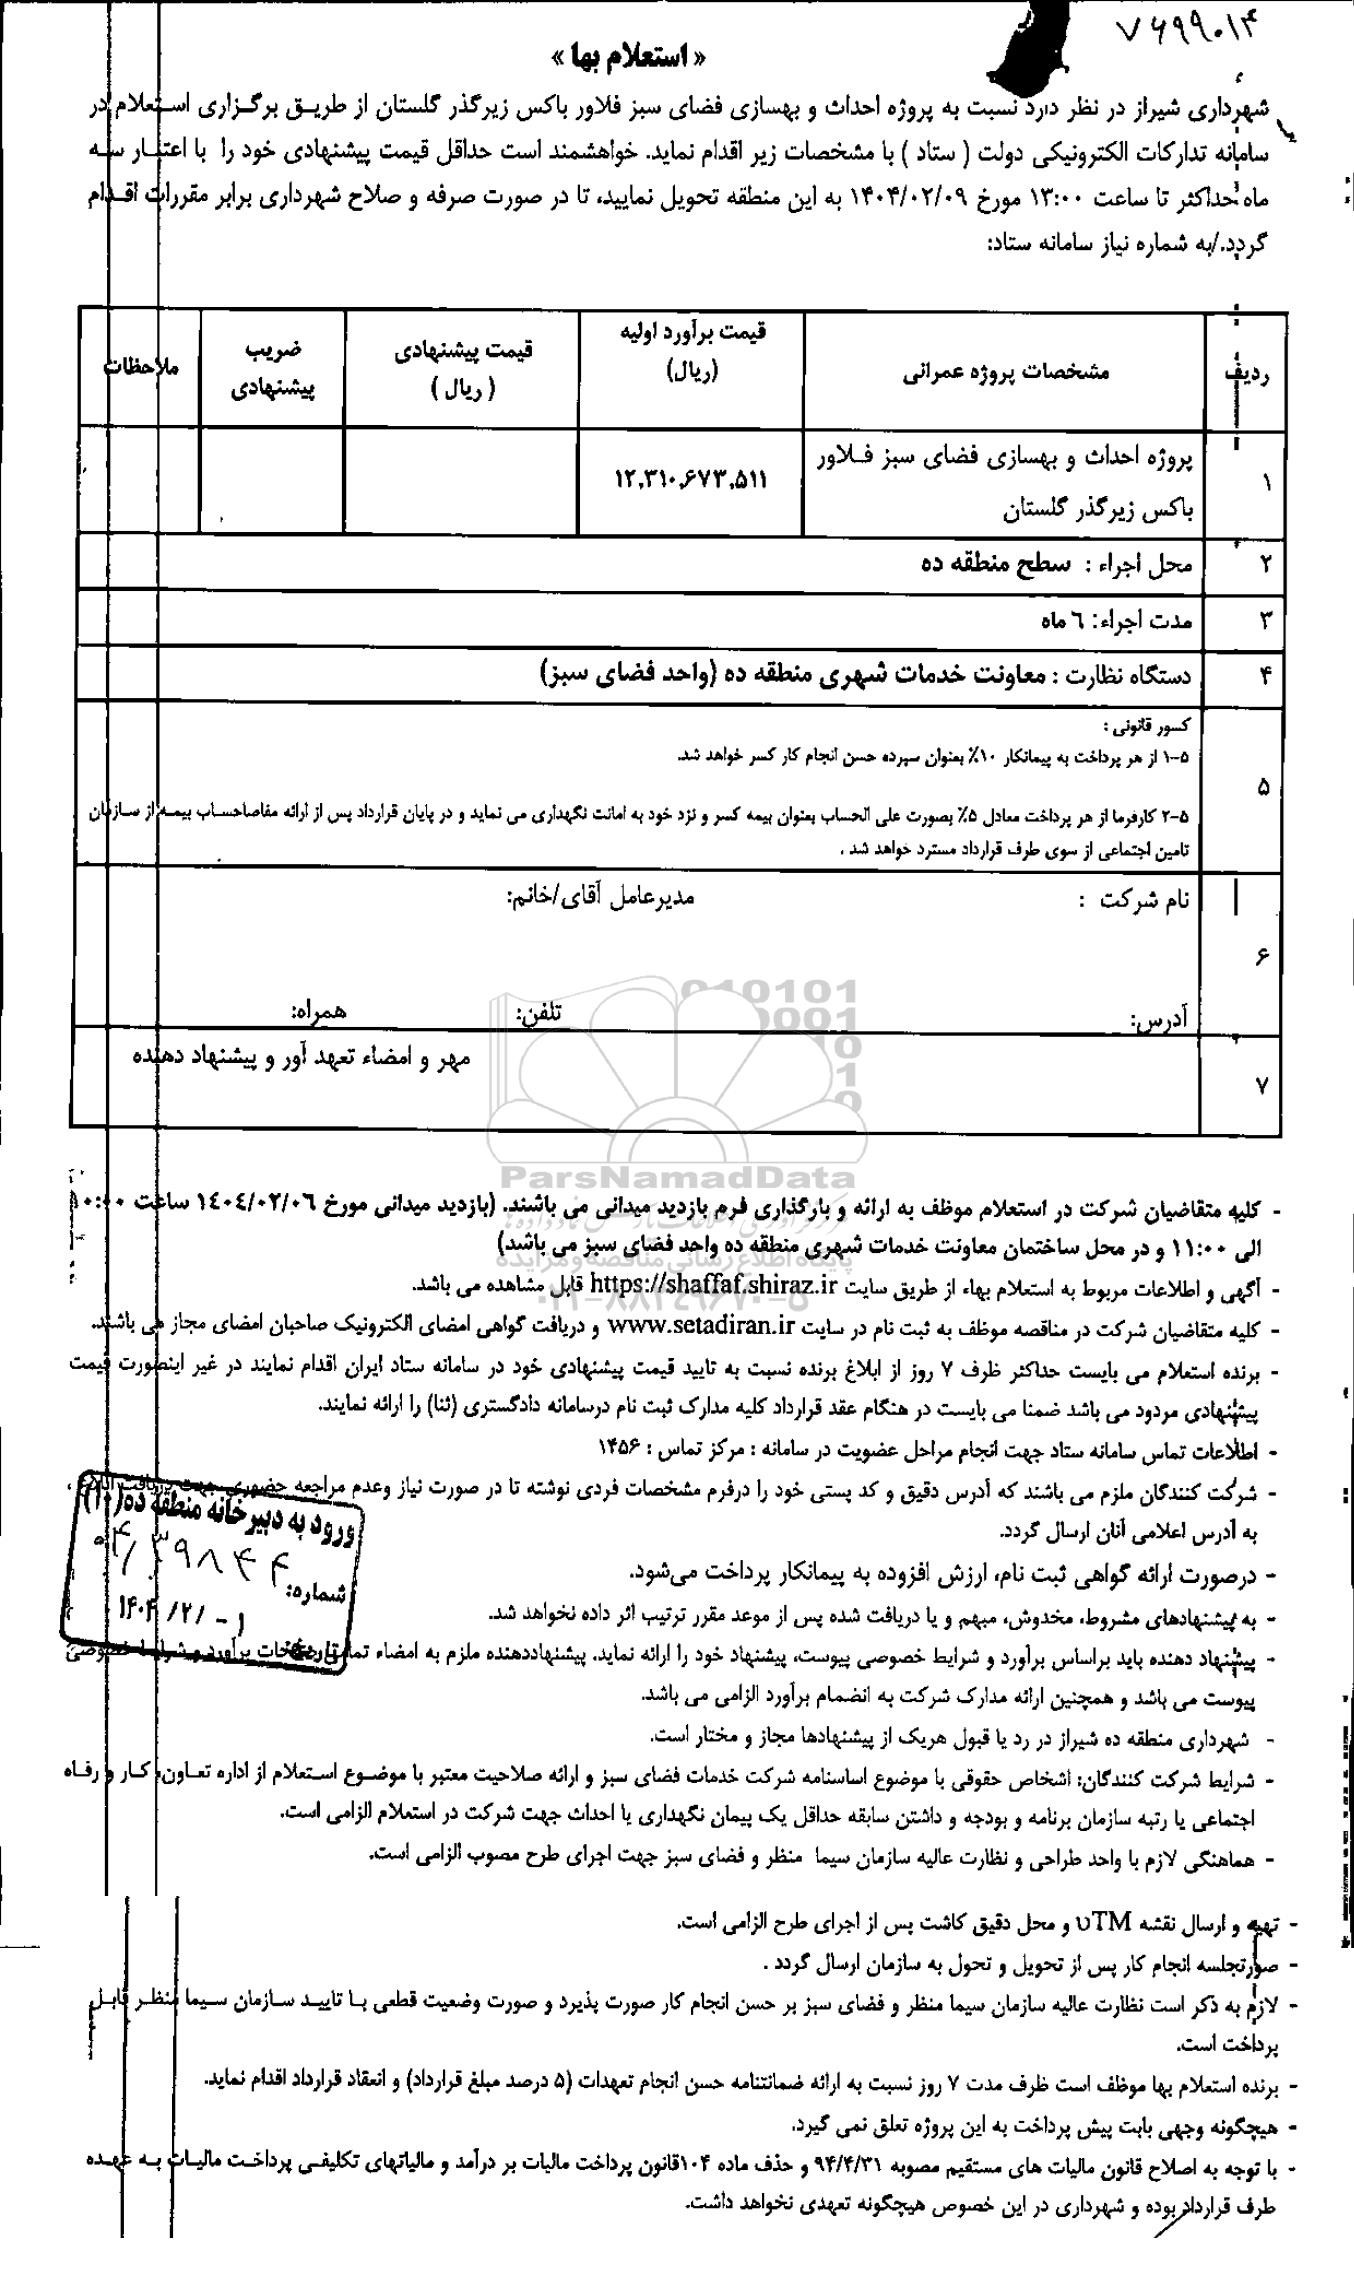 ۷۶۹۹۰۱۴
« استعلام بها »
شهرداری شیراز در نظر دارد نسبت به پروژه احداث و بهسازی فضای سبز فلاور باکس زیرگذر گلستان از طریق برگزاری استعلام در
سامانه تدارکات الکترونیکی دولت ( ستاد ) با مشخصات زیر اقدام نماید. خواهشمند است حداقل قیمت پیشنهادی خود را با اعتبار سه
ماه حداکثر تا ساعت ۱۳:۰۰ مورخ ۱۴۰۴/۰۲/۰۹ به این منطقه تحویل نمایید، تا در صورت صرفه و صلاح شهرداری برابر مقررات اقدام
گردد./به شماره نیاز سامانه ستاد:
ردیف
مشخصات پروژه عمرانی
قیمت برآورد اولیه
(ریال)
قیمت پیشنهادی
( ریال )
ضریب
پیشنهادی
ملاحظات
۱
پروژه احداث و بهسازی فضای سبز فلاور
باکس زیرگذر گلستان
۱۲،۳۱۰،۶۷۳،۵۱۱
۲
محل اجراء : سطح منطقه ده
۳
مدت اجراء: ٦ ماه
۴
دستگاه نظارت : معاونت خدمات شهری منطقه ده (واحد فضای سبز)
۵
کسور قانونی :
۵-۱ از هر پرداخت به پیمانکار ۱۰٪ بعنوان سپرده حسن انجام کار کسر خواهد شد.
۵-۲ کارفرما از هر پرداخت معادل ۵٪ بصورت علی الحساب بعنوان بیمه کسر و نزد خود به امانت نگهداری می نماید و در پایان قرارداد پس از ارائه مفاصاحساب بیمه از سازمان
تامین اجتماعی از سوی طرف قرارداد مسترد خواهد شد .
۶
نام شرکت : مدیرعامل آقای/خانم:
آدرس: تلفن: همراه:
۷
مهر و امضاء تعهد آور و پیشنهاد دهنده
ParsNamadData
پایگاه اطلاع رسانی مناقصه و مزایده
۰۲۱-۸۸۳۴۹۶۷۰-۵
- کلیه متقاضیان شرکت در استعلام موظف به ارائه و بارگذاری فرم بازدید میدانی می باشند. (بازدید میدانی مورخ ۱٤۰٤/۰۲/۰٦ ساعت ۱۰:۰۰
الی ۱۱:۰۰ و در محل ساختمان معاونت خدمات شهری منطقه ده واحد فضای سبز می باشد)
- آگهی و اطلاعات مربوط به استعلام بهاء از طریق سایت https://shaffaf.shiraz.ir قابل مشاهده می باشد.
- کلیه متقاضیان شرکت در مناقصه موظف به ثبت نام در سایت www.setadiran.ir و دریافت گواهی امضای الکترونیک صاحبان امضای مجاز می باشند.
- برنده استعلام می بایست حداکثر ظرف ۷ روز از ابلاغ برنده نسبت به تایید قیمت پیشنهادی خود در سامانه ستاد ایران اقدام نمایند در غیر اینصورت قیمت
پیشنهادی مردود می باشد ضمنا می بایست در هنگام عقد قرارداد کلیه مدارک ثبت نام درسامانه دادگستری (ثنا) را ارائه نمایند.
- اطلاعات تماس سامانه ستاد جهت انجام مراحل عضویت در سامانه : مرکز تماس : ۱۴۵۶
- شرکت کنندگان ملزم می باشند که آدرس دقیق و کد پستی خود را درفرم مشخصات فردی نوشته تا در صورت نیاز وعدم مراجعه حضوری جهت دریافت ابلاغ ،
به آدرس اعلامی آنان ارسال گردد.
ورود به دبیرخانه منطقه ده(۱۰)
شماره:
۱۴۰۴/۲/-۱
- درصورت ارائه گواهی ثبت نام، ارزش افزوده به پیمانکار پرداخت می‌شود.
- به پیشنهادهای مشروط، مخدوش، مبهم و یا دریافت شده پس از موعد مقرر ترتیب اثر داده نخواهد شد.
- پیشنهاد دهنده باید براساس برآورد و شرایط خصوصی پیوست، پیشنهاد خود را ارائه نماید. پیشنهاددهنده ملزم به امضاء تمامی صفحات برآورد و شرایط خصوصی
پیوست می باشد و همچنین ارائه مدارک شرکت به انضمام برآورد الزامی می باشد.
- شهرداری منطقه ده شیراز در رد یا قبول هریک از پیشنهادها مجاز و مختار است.
- شرایط شرکت کنندگان: اشخاص حقوقی با موضوع اساسنامه شرکت خدمات فضای سبز و ارائه صلاحیت معتبر با موضوع استعلام از اداره تعاون، کار و رفاه
اجتماعی یا رتبه سازمان برنامه و بودجه و داشتن سابقه حداقل یک پیمان نگهداری یا احداث جهت شرکت در استعلام الزامی است.
- هماهنگی لازم با واحد طراحی و نظارت عالیه سازمان سیما منظر و فضای سبز جهت اجرای طرح مصوب الزامی است.
- تهیه و ارسال نقشه UTM و محل دقیق کاشت پس از اجرای طرح الزامی است.
- صورتجلسه انجام کار پس از تحویل و تحول به سازمان ارسال گردد .
- لازم به ذکر است نظارت عالیه سازمان سیما منظر و فضای سبز بر حسن انجام کار صورت پذیرد و صورت وضعیت قطعی با تایید سازمان سیما منظر قابل
پرداخت است.
- برنده استعلام بها موظف است ظرف مدت ۷ روز نسبت به ارائه ضمانتنامه حسن انجام تعهدات (۵ درصد مبلغ قرارداد) و انعقاد قرارداد اقدام نماید.
- هیچگونه وجهی بابت پیش پرداخت به این پروژه تعلق نمی گیرد.
- با توجه به اصلاح قانون مالیات های مستقیم مصوبه ۹۴/۴/۳۱ و حذف ماده ۱۰۴قانون پرداخت مالیات بر درآمد و مالیاتهای تکلیفی پرداخت مالیات به عهده
طرف قرارداد بوده و شهرداری در این خصوص هیچگونه تعهدی نخواهد داشت.